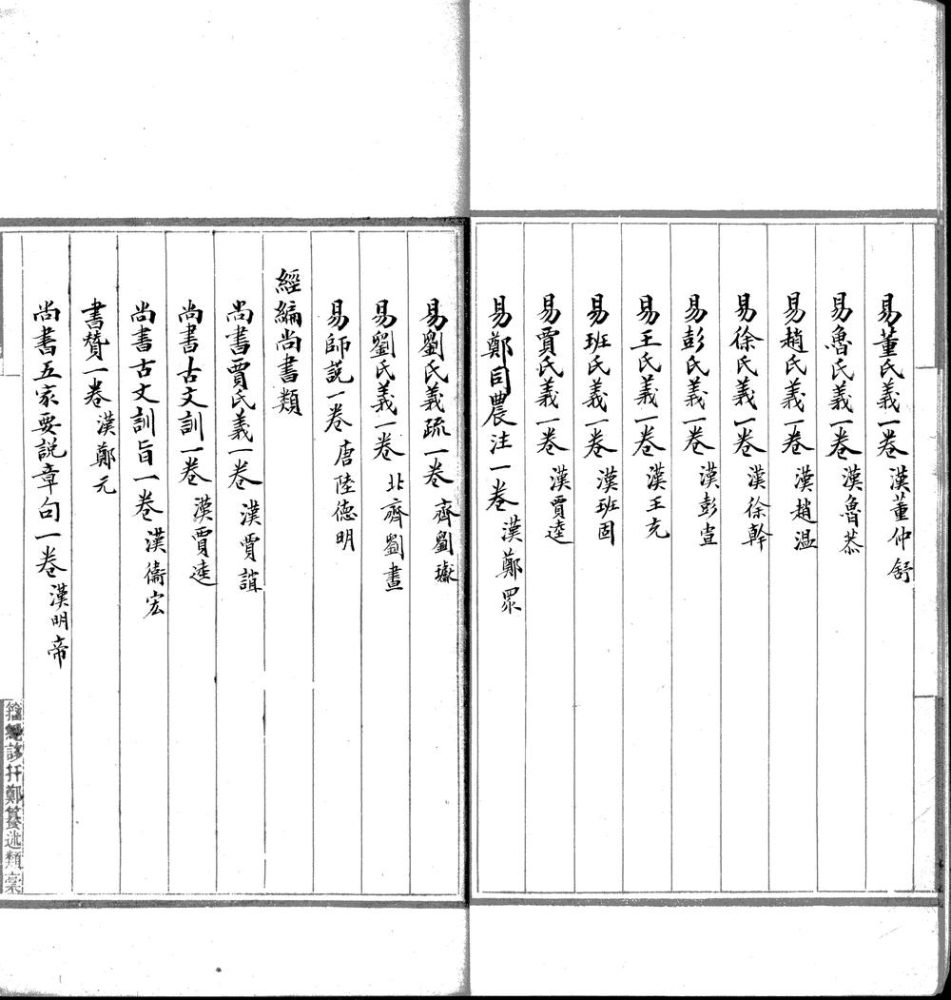 易董氏義一卷 漢董仲舒
易魯氏義一卷 漢魯恭
易趙氏義一卷 漢趙溫
易徐氏義一卷 漢徐幹
易彭氏義一卷 漢彭宣
易王氏義一卷 漢王充
易班氏義一卷 漢班固
易賈氏義一卷 漢賈逵
易鄭司農注一卷 漢鄭眾
易劉氏義疏一卷 齊劉瓛
易劉氏義一卷 北齊劉晝
易師說一卷 唐陸德明
經編尚書類
尚書賈氏義一卷 漢賈誼
尚書古文訓一卷 漢賈逵
尚書古文訓旨一卷 漢衞宏
書贊一卷 漢鄭元
尚書五家要說章句一卷 漢明帝
鄭纂述類稾